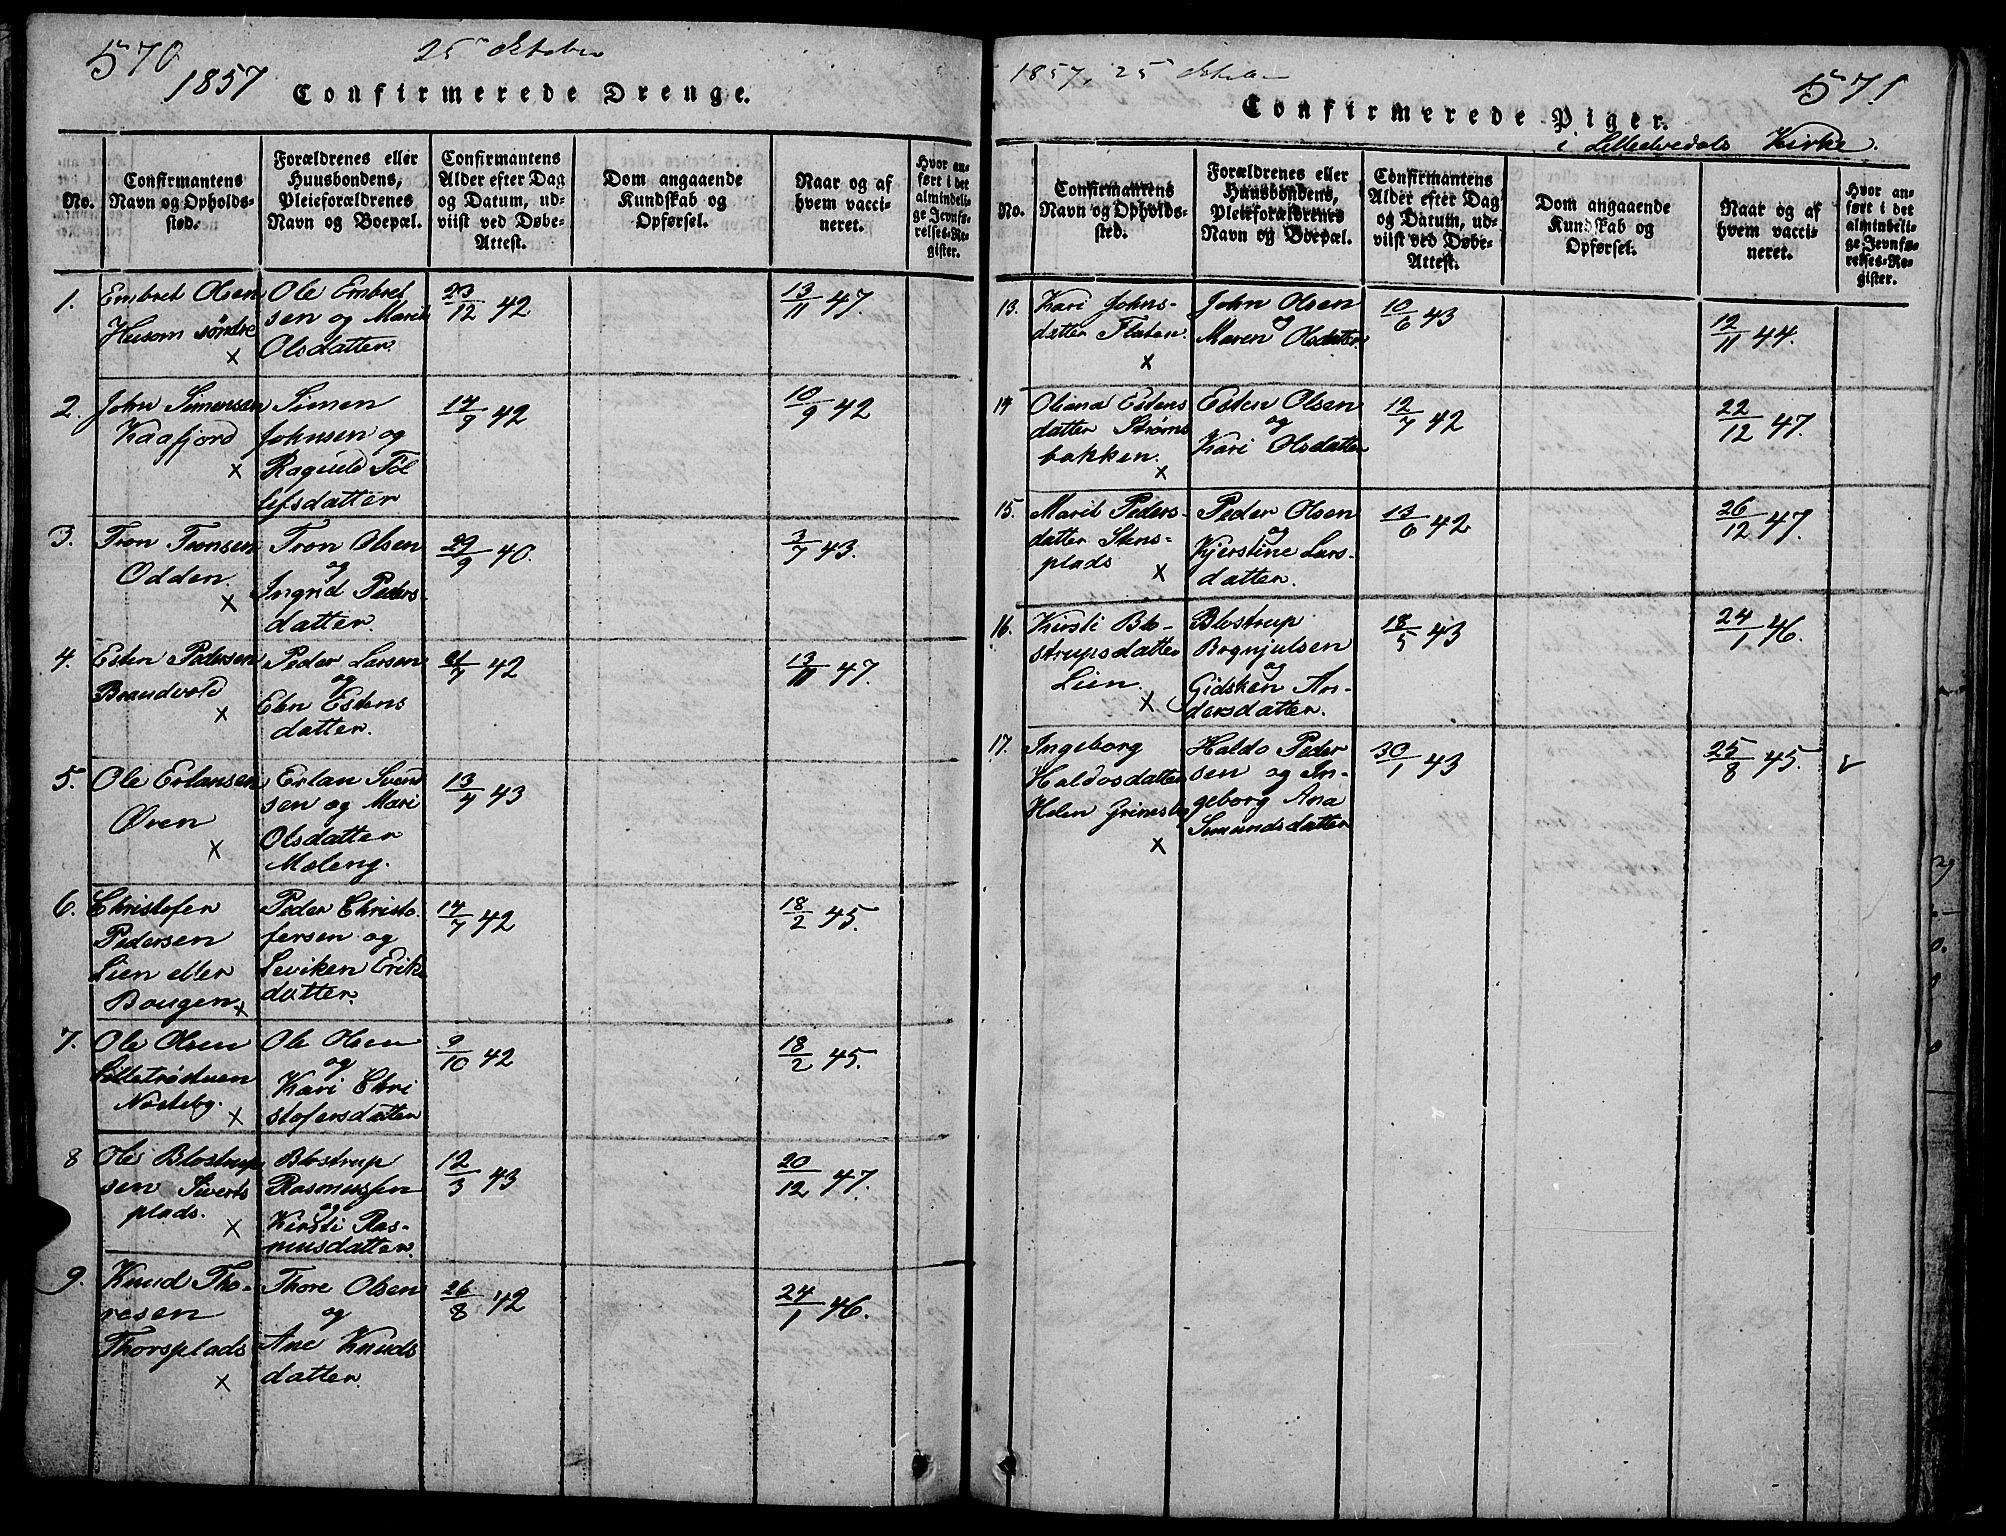 570
25 October
1857
Confirmerede Drenge.
No.
Confirmantens
Navn og Opholds-
sted.
Forældrenes eller
Huusbondens,
Pleieforældrenes
Navn og Boepæl.
Confirmantens
Alder efter Dag
og Datum, ud-
viist ved Døbe-
Attest.
Dom angaaende
Kundskab og
Opførsel.
Naar og af
hvem vacci-
neret.
Hvor an-
ført i det
almindeli-
ge Jevnfø-
relses-Re-
gister.
1.
Embret Olsen
Husom söndre
×
Ole Embret
sen og Marit
Olsdatter
23/12 42
13/11 47.
2.
John Simensen
Kaafjord
×
Simen
Johnsen og
Ragnild Tol
lefsdatter
14/9 42
10/9 42
3.
Tron Tronsen
Odden.
×
Tron Olsen
og
Ingrid Peders-
datter.
29/9 40.
3/7 43.
4.
Esten Pedersen
Brandvold
×
Peder Larsen
og
Elen Estens
datter.
21/7 42
13/11 47.
5.
Ole Erlansen
Øien
×
Erlan Svend
sen og Mari
Olsdatter
Moleng.
13/4 43
6.
Christofer
Pedersen
Lien eller
Bougen.
×
Peder Christo
fersen og
Leviken Eriks
datter.
14/7 42
18/2 45.
7.
Ole Olsen
Lilletröduen
Nosteby.
×
Ole Olsen
og
Kari Chri
stofersdatter
9/10 42
18/2 45.
8
Ole Blostrup
sen Siverts
plads.
×
Blostrup
Rasmussen
og
Kirsti Ras-
musdatter.
12/3 43
20/12 47.
9.
Knud Tho-
resen
Thorsplads
×
Thore Olsen
og
Ane Knuds
datter.
26/8 42
24/1 46.
1857, 25 October
571
Confirmerede Piger.
i Lilleelvedals Kirke.
No.
Confirmantens
Navn og Opholds-
sted.
Forældrenes eller
Huusbondens,
Pleieforældrenes
Navn og Boepæl.
Confirmantens
Alder efter Dag
og Datum, ud-
viist ved Døbe-
Attest.
Dom angaaende
Kundskab og
Opførsel.
Naar og af
hvem vacci-
neret.
Hvor an-
ført i det
almindeli-
ge Jevnfø-
relses-Re-
gister.
13.
Kari Johns-
datter Flaten.
×
John Olsen
og
Maren Olsdatter
10/6 43
12/11 44.
14
Oliana Estens
datter Ströms
bakken.
×
Esten Olsen
og
Kari Olsdatter
12/7 42
22/12 47.
15.
Marit Peders-
datter Stens-
plads
×
Peder Olsen
og
Kjerstine Lars-
datter.
13/6 42
26/12 47.
16.
Kirsti Blo-
strupsdatter
Lien.
×
Blostrup
Bognjulsen
og
Gidsken An-
dersdatter.
18/5 43
24/1 46.
17.
Ingeborg
Haldosdatter
Holen Grimsbu
×
Haldo Peder
sen og In-
geborg Ana
Semundsdatter
30/1 43
25/8 45.